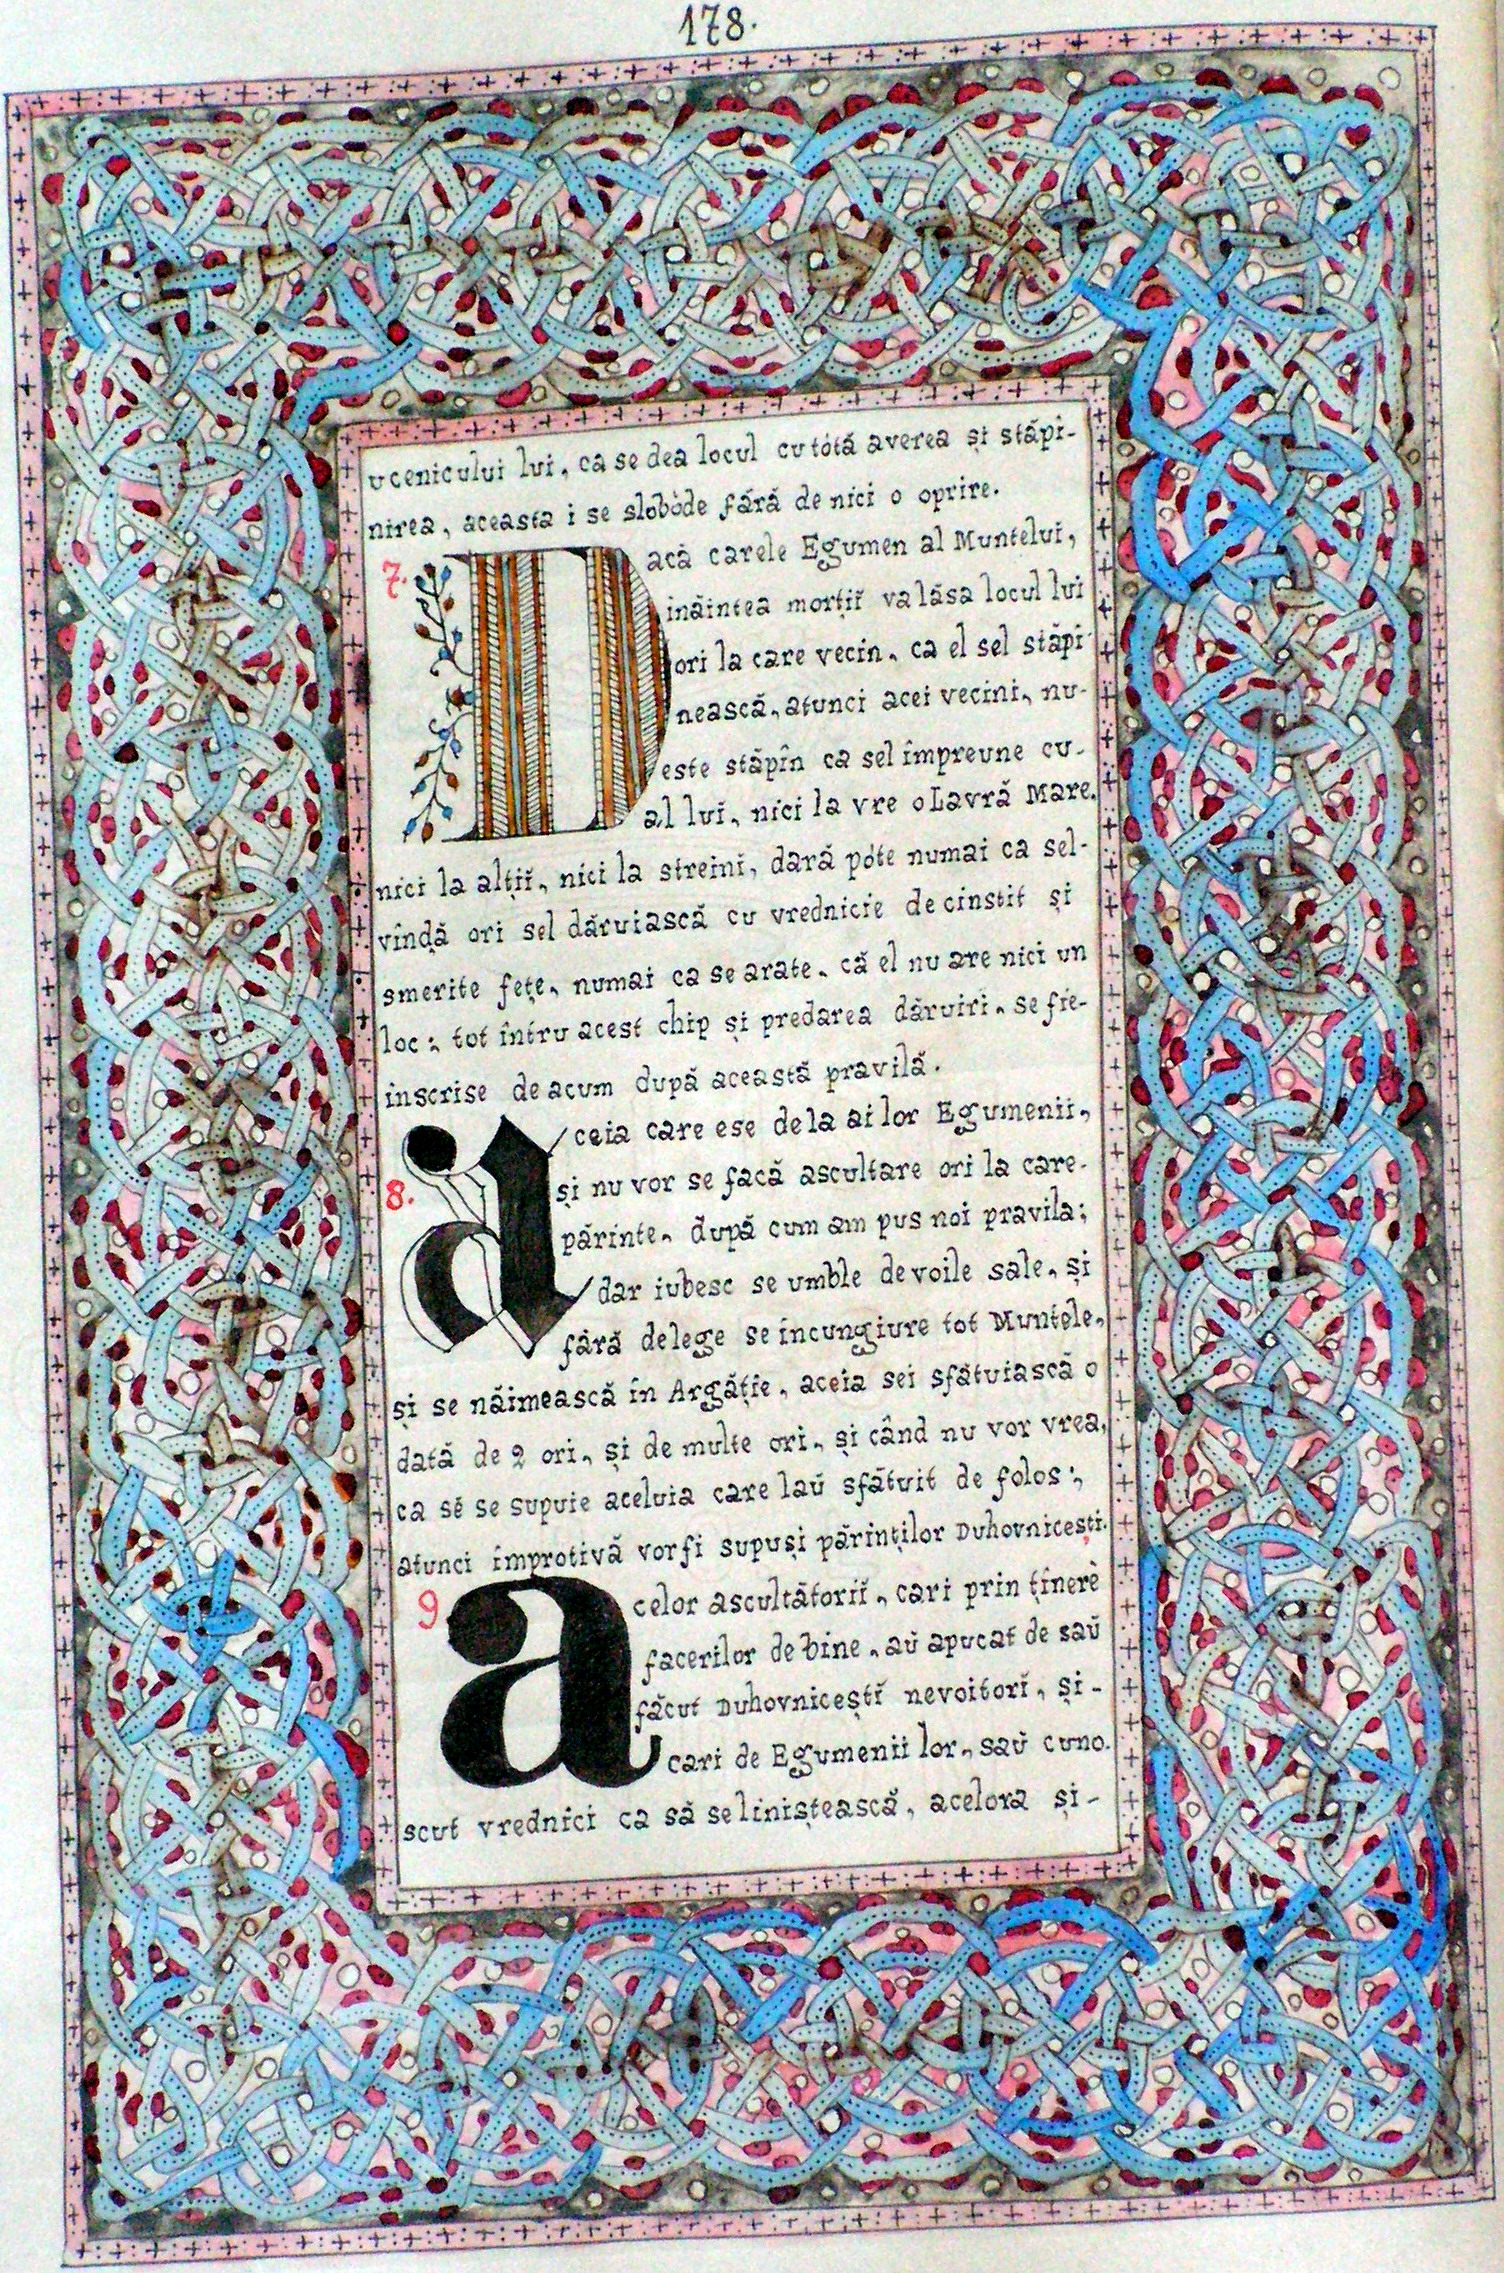 178.
ucenicului lui, ca se dea locul cu tótă averea și stăpi-
nirea, aceasta i se slobóde fără de nici o oprire.
7. Dacă carele Egumen al Muntelui,
inăintea morțiĭ va lăsa locul lui
ori la care vecin, ca el sel stăpi-
nească, atunci acei vecini, nu-
este stăpîn ca sel împreune cu-
al lui, nici la vre o Lavră Mare,
nici la alțiĭ, nici la streini, dară póte numai ca sel-
vîndă ori sel dăruiască cu vrednicie de cinstit și
smerite fețe, numai ca se arate, că el nu are nici un
loc; tot întru acest chip și predarea dăruiri, se fie-
inscrise de acum după această pravilă.
8. Aceia care ese de la ai lor Egumenii,
și nu vor se facă ascultare ori la care-
părinte, după cum am pus noi pravila;
dar iubesc se umble de voile sale, și
fără de lege se incungiure tot Muntele,
și se năimească în Argăție, aceia sei sfătuiască o
dată de 2 ori, și de multe ori, și când nu vor vrea,
ca sĕ se supuie aceluia care laŭ sfătuit de folos;
atunci împrotivă vor fi supuși părinților Duhovnicești.
9 acelor ascultătoriĭ, cari prin ținerè
facerilor de bine, aŭ apucat de saŭ
făcut Duhovniceștĭ nevoitorĭ, și-
cari de Egumenii lor, saŭ cuno-
scut vrednici ca să se liniștească, acelora și-